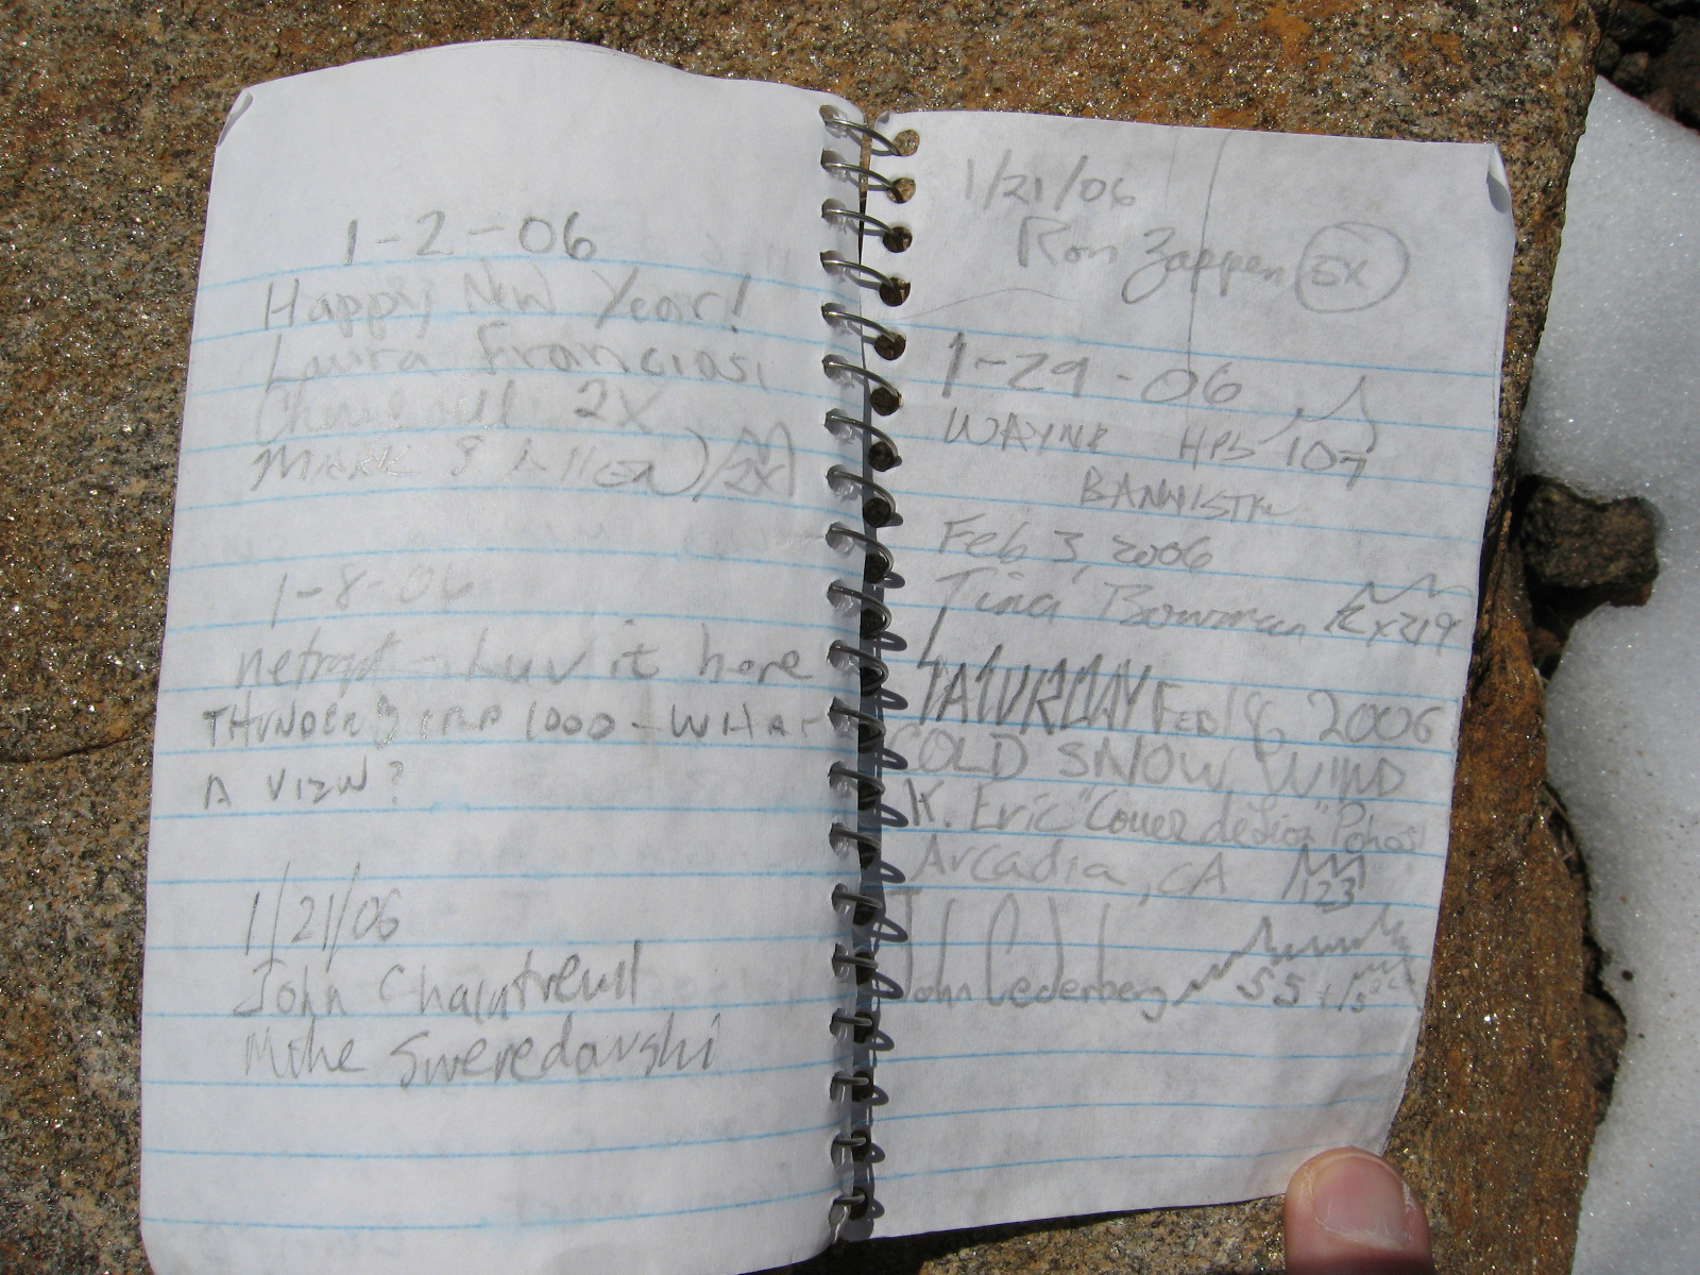 1-2-06
Happy New Year!
Laura Franciosi
2X
Mark S Allen 2X
1-8-06
Luv it here
THUNDER 1000 - WHAT
A VIEW?
1/21/06
John Chaintreuil
Mike Sweredowski
1/21/06
Ron Zappen 5X
1-29-06
WAYNE HPS 107
BANNISTER
Feb 3, 2006
Tina Bowman X219
SATURDAY FEB 18, 2006
COLD SNOW WIND
K. Eric
Arcadia, CA 123
John Cederberg SS